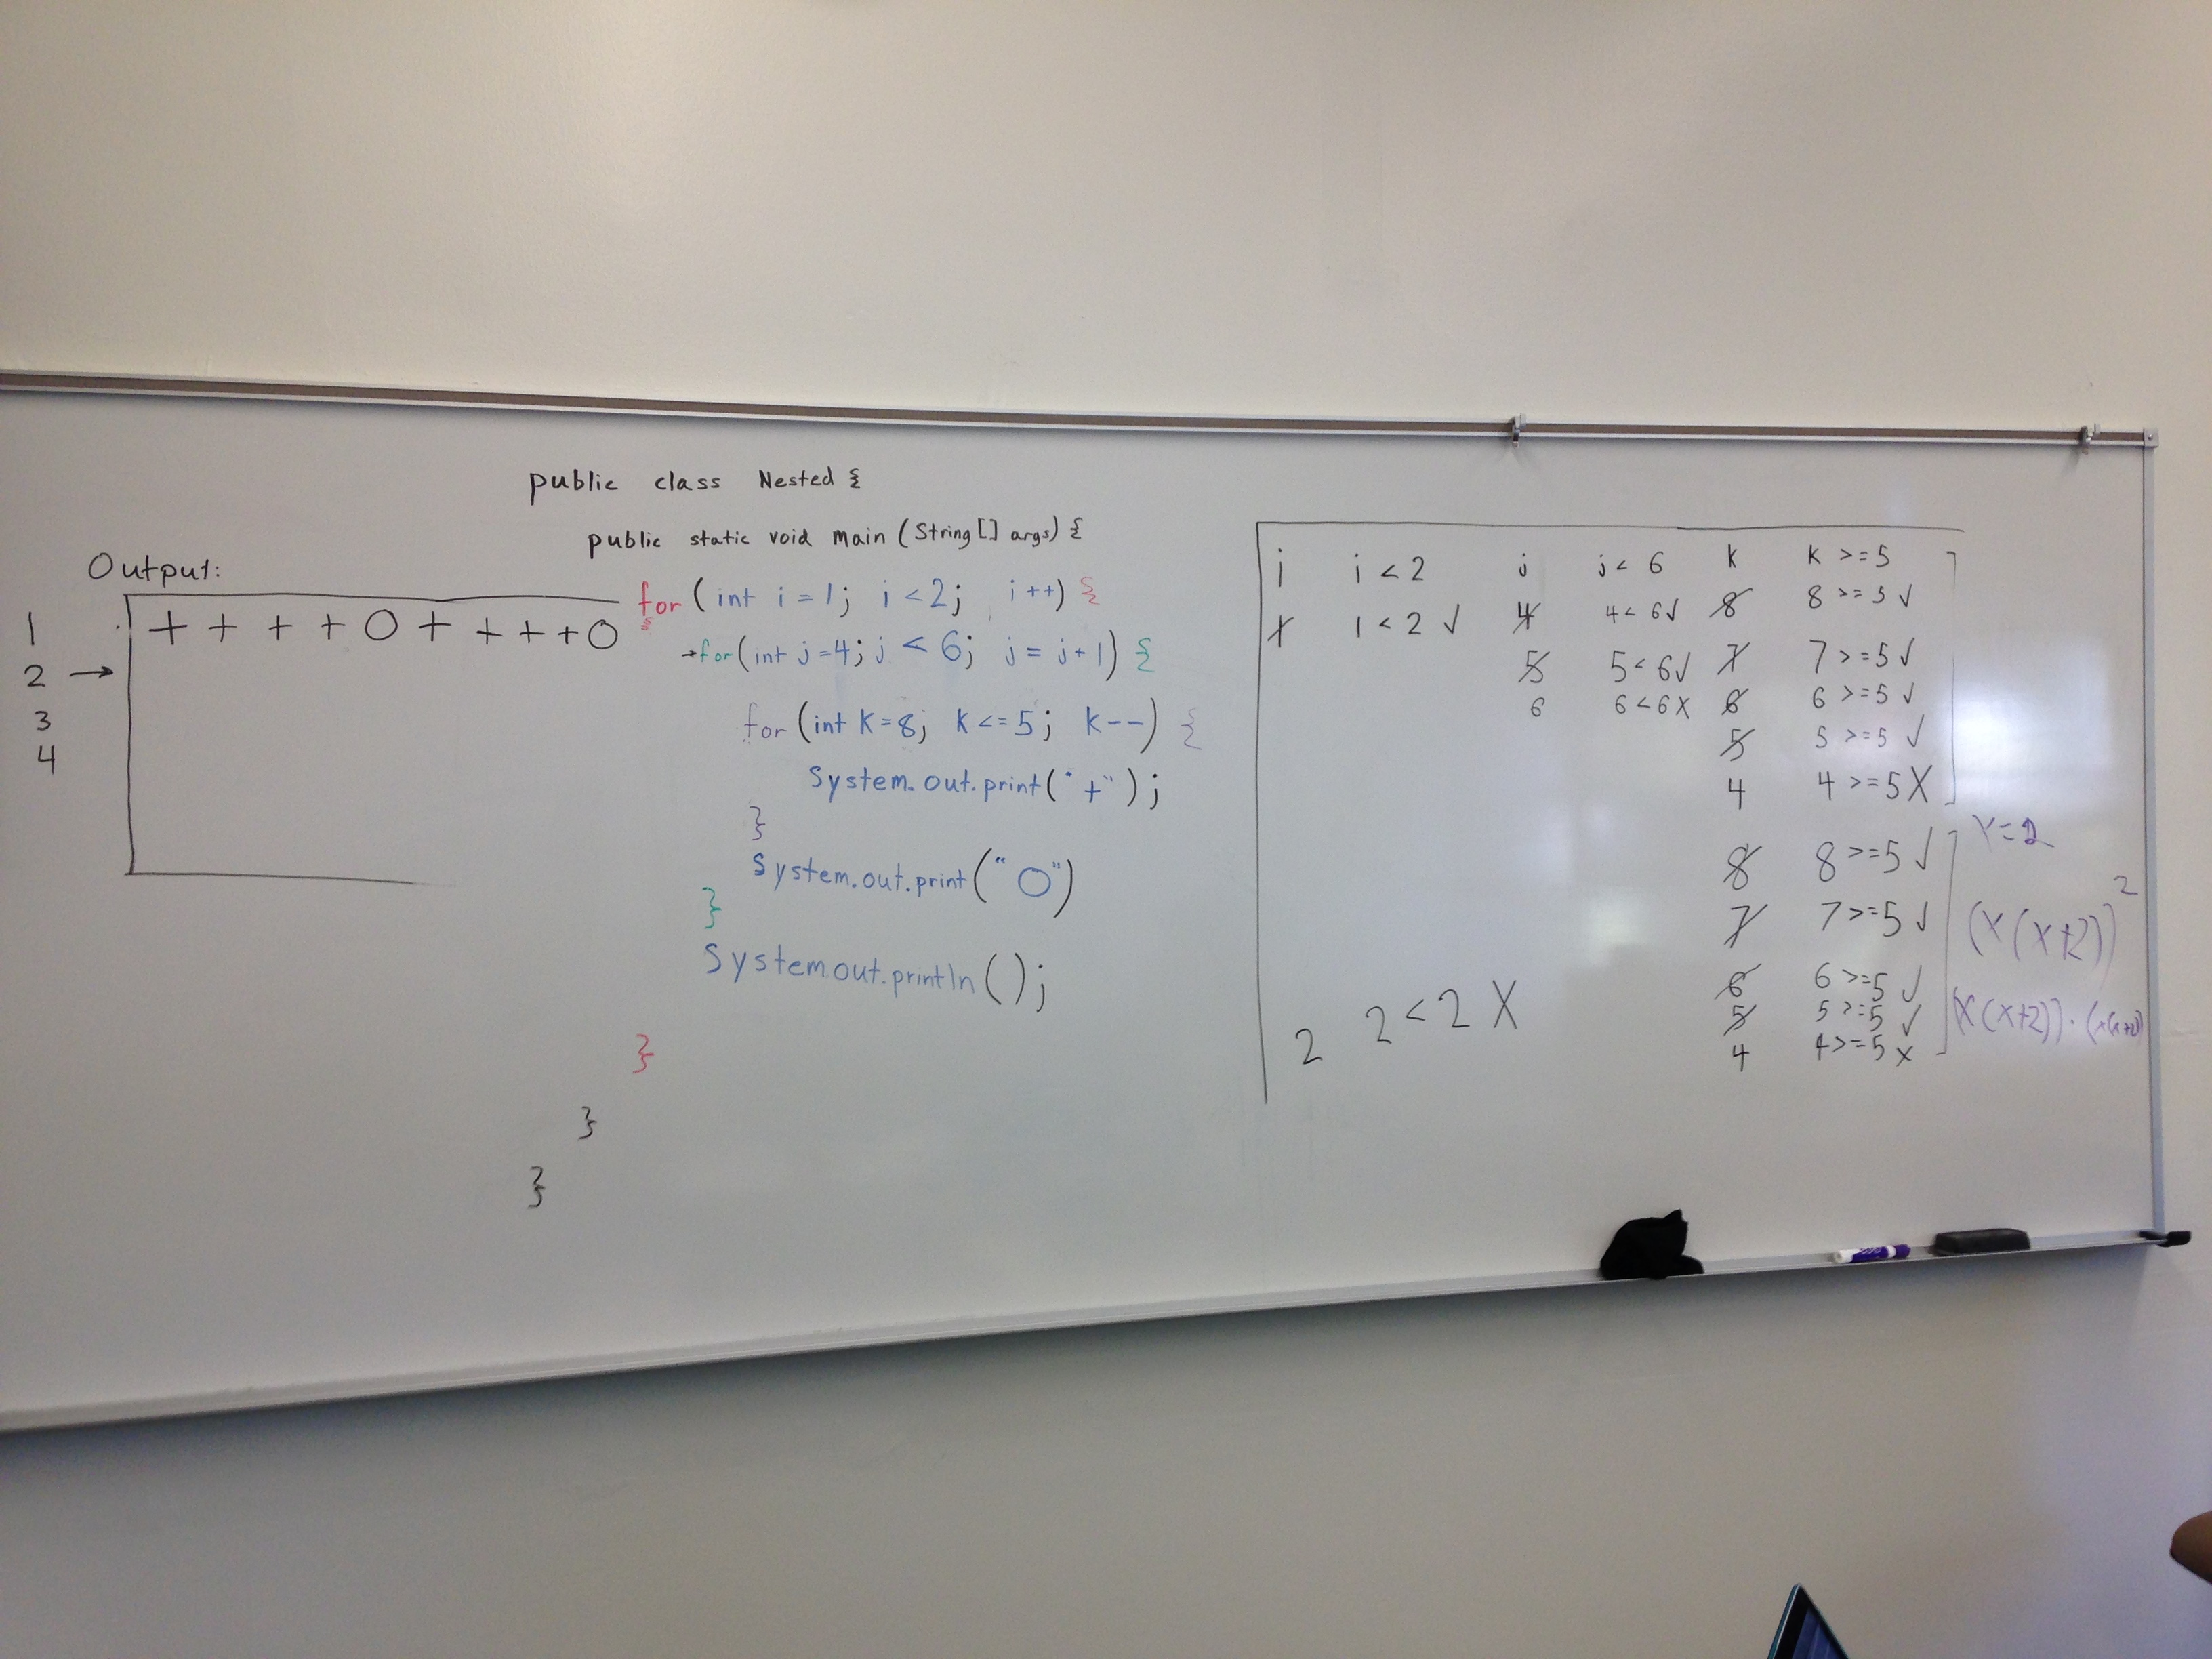 public class Nested {
public static void main (String [] args) {
Output:
1
2 →
3
4
+ + + + O + + + + O
for (int i = 1; i < 2; i ++) {
→ for (int j = 4; j < 6; j = j + 1) {
for (int k = 8; k <= 5; k --) {
System.out.print("+");
}
System.out.print("O")
}
System.out.println();
}
}
}
i i < 2 j j < 6 k k >= 5
1 1 < 2 ✓ 4 4 < 6 ✓ 8 8 >= 5 ✓
5 5 < 6 ✓ 7 7 >= 5 ✓
6 6 < 6 X 6 6 >= 5 ✓
5 5 >= 5 ✓
4 4 >= 5 X
8 8 >= 5 ✓
7 7 >= 5 ✓
6 6 >= 5 ✓
5 5 >= 5 ✓
4 4 >= 5 X
2 2 < 2 X
X = 2
(X (X+2))²
(X (X+2)) · (X(X+2))